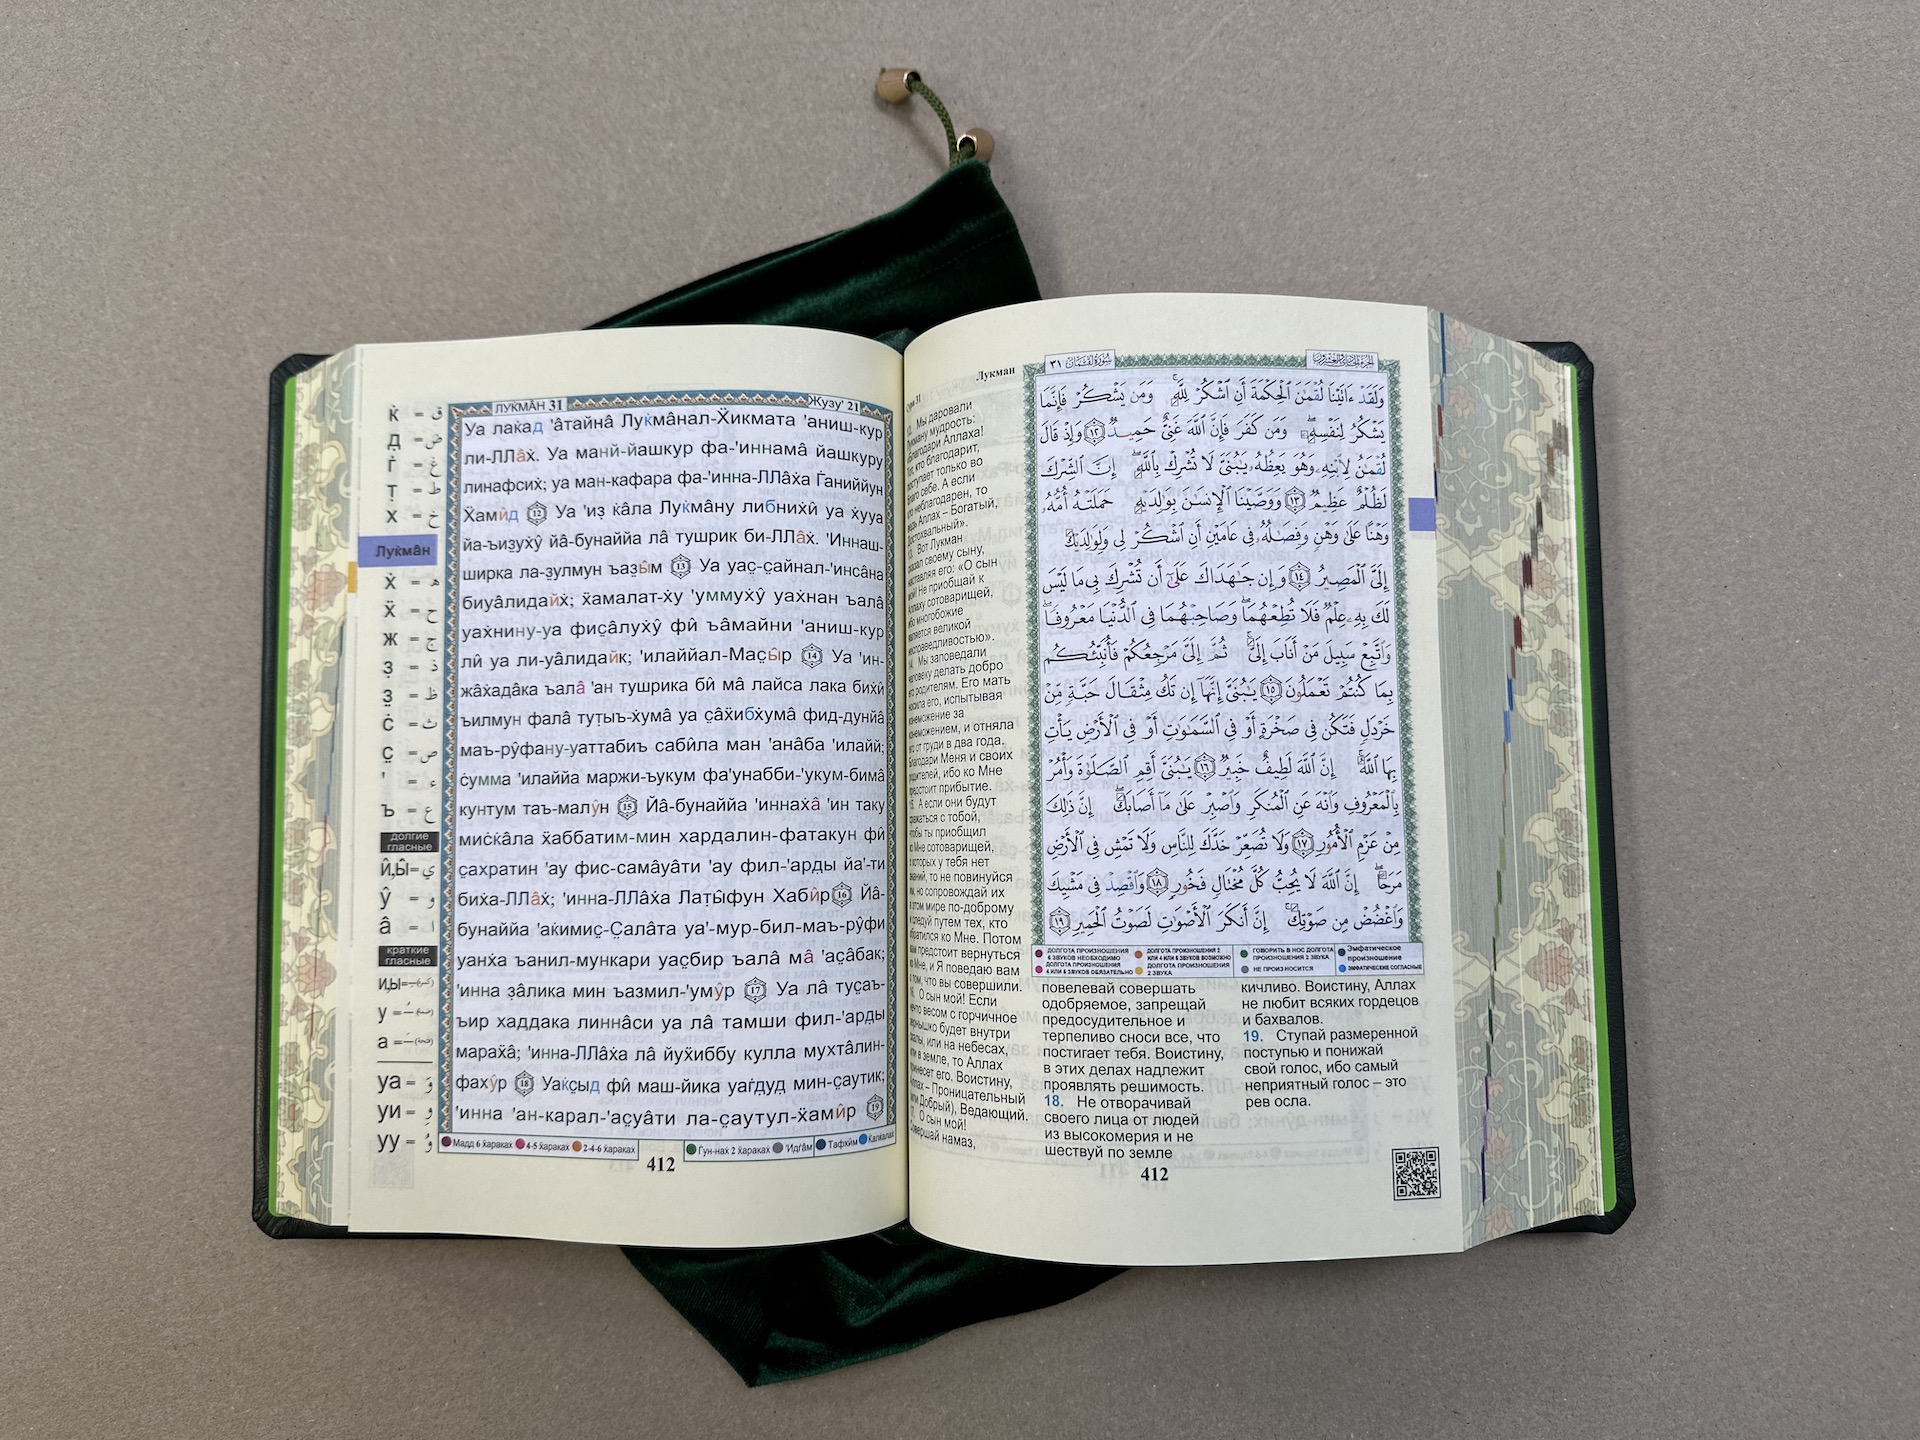 ЛУК̇МÂН 31
Жузу' 21
Уа лак̇ад 'âтайнâ Лук̇мâнал-Ӿикмата 'аниш-кур
ли-ЛЛâх̇. Уа манй-йашкур фа-'иннамâ йашкуру
линафсих̇; уа ман-кафара фа-'инна-ЛЛâх̇а Г̇аниййун
Ӿамӣ̂д 12 Уа 'из̣ к̇âла Лук̇мâну либних̇ӣ̂ уа х̇ууа
йа-ъиз̤ух̇ŷ йâ-бунаййа лâ тушрик би-ЛЛâх̇. 'Иннаш-
ширка ла-з̤улмун ъаз̤ы̂м 13 Уа уас̤-с̤айнал-'инсâна
биуâлидайх̇; ӿамалат-х̇у 'уммух̇ŷ уах̇нан ъалâ
уах̇нину-уа фис̤âлух̇ŷ фӣ̂ ъâмайни 'аниш-кур
лӣ̂ уа ли-уâлидайк; 'илаййал-Мас̤ы̂р 14 Уа 'ин-
жâх̇адâка ъалâ 'ан тушрика бӣ̂ мâ лайса лака бих̇ӣ̂
ъилмун фалâ тут̣ыъ-х̇умâ уа с̤âӿибх̇умâ фид-дунйâ
маъ-рŷфану-уаттабиъ сабӣ̂ла ман 'анâба 'илайй;
с̇умма 'илаййа маржи-ъукум фа'унабби-'укум-бимâ
кунтум таъ-малŷн 15 Йâ-бунаййа 'иннах̇â 'ин таку
мис̇к̇âла ӿаббатим-мин хардалин-фатакун фӣ̂
с̤ахратин 'ау фис-самâуâти 'ау фил-'арды йа'-ти
бих̇а-ЛЛâх̇; 'инна-ЛЛâх̇а Лат̣ы̂фун Хабӣ̂р 16 Йâ-
бунаййа 'ак̇имис̤-С̤алâта уа'-мур-бил-маъ-рŷфи
уанх̇а ъанил-мункари уас̤бир ъалâ мâ 'ас̤âбак;
'инна з̣âлика мин ъазмил-'умŷр 17 Уа лâ тус̤аъ-
ъир хаддака линнâси уа лâ тамши фил-'арды
мараӿâ; 'инна-ЛЛâх̇а лâ йуӿиббу кулла мухтâлин-
фахŷр 18 Уак̇с̤ыд фӣ̂ маш-йика уаг̇д̣уд̣ мин-с̤аутик;
'инна 'ан-карал-'ас̤уâти ла-с̤аутул-ӿамӣ̂р 19
Мадд 6 ӿараках
4-5 ӿараках
2-4-6 ӿараках
Г̇ун-нах 2 ӿараках
'Идг̇âм
Тафхӣ̂м
К̇алк̇алах
412
К̇ = ق
Д̣ = ض
Г̇ = غ
Т̣ = ط
Х = خ
Лук̇мâн
Х̇ = ه
Ӿ = ح
Ж = ج
З̣ = ذ
З̤ = ظ
С̇ = ث
С̤ = ص
' = ء
Ъ = ع
долгие
гласные
Ӣ̂,Ы̂ = ي
Ŷ = و
Â = ا
краткие
гласные
и,ы =
у =
а =
уа = وَ
уи = وِ
уу = وُ
Лукман
سُورَةُ لُقْمَان ٣١
الجزء الحادي والعشرون
وَلَقَدْ ءَاتَيْنَا لُقْمَٰنَ ٱلْحِكْمَةَ أَنِ ٱشْكُرْ لِلَّهِۚ وَمَن يَشْكُرْ فَإِنَّمَا
يَشْكُرُ لِنَفْسِهِۦۖ وَمَن كَفَرَ فَإِنَّ ٱللَّهَ غَنِىٌّ حَمِيدٌ ١٢ وَإِذْ قَالَ
لُقْمَٰنُ لِٱبْنِهِۦ وَهُوَ يَعِظُهُۥ يَٰبُنَىَّ لَا تُشْرِكْ بِٱللَّهِۖ إِنَّ ٱلشِّرْكَ
لَظُلْمٌ عَظِيمٌ ١٣ وَوَصَّيْنَا ٱلْإِنسَٰنَ بِوَٰلِدَيْهِ حَمَلَتْهُ أُمُّهُۥ
وَهْنًا عَلَىٰ وَهْنٍ وَفِصَٰلُهُۥ فِى عَامَيْنِ أَنِ ٱشْكُرْ لِى وَلِوَٰلِدَيْكَ
إِلَىَّ ٱلْمَصِيرُ ١٤ وَإِن جَٰهَدَاكَ عَلَىٰٓ أَن تُشْرِكَ بِى مَا لَيْسَ
لَكَ بِهِۦ عِلْمٌ فَلَا تُطِعْهُمَاۖ وَصَاحِبْهُمَا فِى ٱلدُّنْيَا مَعْرُوفًاۖ
وَٱتَّبِعْ سَبِيلَ مَنْ أَنَابَ إِلَىَّۚ ثُمَّ إِلَىَّ مَرْجِعُكُمْ فَأُنَبِّئُكُم
بِمَا كُنتُمْ تَعْمَلُونَ ١٥ يَٰبُنَىَّ إِنَّهَآ إِن تَكُ مِثْقَالَ حَبَّةٍ مِّنْ
خَرْدَلٍ فَتَكُن فِى صَخْرَةٍ أَوْ فِى ٱلسَّمَٰوَٰتِ أَوْ فِى ٱلْأَرْضِ يَأْتِ
بِهَا ٱللَّهُۚ إِنَّ ٱللَّهَ لَطِيفٌ خَبِيرٌ ١٦ يَٰبُنَىَّ أَقِمِ ٱلصَّلَوٰةَ وَأْمُرْ
بِٱلْمَعْرُوفِ وَٱنْهَ عَنِ ٱلْمُنكَرِ وَٱصْبِرْ عَلَىٰ مَآ أَصَابَكَۖ إِنَّ ذَٰلِكَ
مِنْ عَزْمِ ٱلْأُمُورِ ١٧ وَلَا تُصَعِّرْ خَدَّكَ لِلنَّاسِ وَلَا تَمْشِ فِى ٱلْأَرْضِ
مَرَحًاۖ إِنَّ ٱللَّهَ لَا يُحِبُّ كُلَّ مُخْتَالٍ فَخُورٍ ١٨ وَٱقْصِدْ فِى مَشْيِكَ
وَٱغْضُضْ مِن صَوْتِكَۚ إِنَّ أَنكَرَ ٱلْأَصْوَٰتِ لَصَوْتُ ٱلْحَمِيرِ ١٩
ДОЛГОТА ПРОИЗНОШЕНИЯ
6 ЗВУКОВ НЕОБХОДИМО
ДОЛГОТА ПРОИЗНОШЕНИЯ
4 ИЛИ 5 ЗВУКОВ ОБЯЗАТЕЛЬНО
ДОЛГОТА ПРОИЗНОШЕНИЯ 2
ИЛИ 4 ИЛИ 6 ЗВУКОВ ВОЗМОЖНО
ДОЛГОТА ПРОИЗНОШЕНИЯ
2 ЗВУКА
ГОВОРИТЬ В НОС ДОЛГОТА
ПРОИЗНОШЕНИЯ 2 ЗВУКА
НЕ ПРОИЗНОСИТСЯ
Эмфатическое
произношение
ЭМФАТИЧЕСКИЕ СОГЛАСНЫЕ
Мы даровали
мудрость:
Аллаха!
кто благодарит,
поступает только во
благо себе. А если
неблагодарен, то
Аллах – Богатый,
Вот Лукман
сказал своему сыну,
его: «О сын
мой! Не приобщай к
Аллаху сотоварищей,
ибо многобожие
является великой
несправедливостью».
14. Мы заповедали
человеку делать добро
его родителям. Его мать
носила его, испытывая
изнеможение за
изнеможением, и отняла
от груди в два года.
Благодари Меня и своих
родителей, ибо ко Мне
предстоит прибытие.
А если они будут
сражаться с тобой,
чтобы ты приобщил
ко Мне сотоварищей,
о которых у тебя нет
знаний, то не повинуйся
им, но сопровождай их
в этом мире по-доброму
и следуй путем тех, кто
обратился ко Мне. Потом
вам предстоит вернуться
ко Мне, и Я поведаю вам
о том, что вы совершили.
О сын мой! Если
нечто весом с горчичное
зернышко будет внутри
скалы, или на небесах,
или в земле, то Аллах
принесет его. Воистину,
Аллах – Проницательный
(или Добрый), Ведающий.
О сын мой!
Совершай намаз,
повелевай совершать
одобряемое, запрещай
предосудительное и
терпеливо сноси все, что
постигает тебя. Воистину,
в этих делах надлежит
проявлять решимость.
18. Не отворачивай
своего лица от людей
из высокомерия и не
шествуй по земле
кичливо. Воистину, Аллах
не любит всяких гордецов
и бахвалов.
19. Ступай размеренной
поступью и понижай
свой голос, ибо самый
неприятный голос – это
рев осла.
412